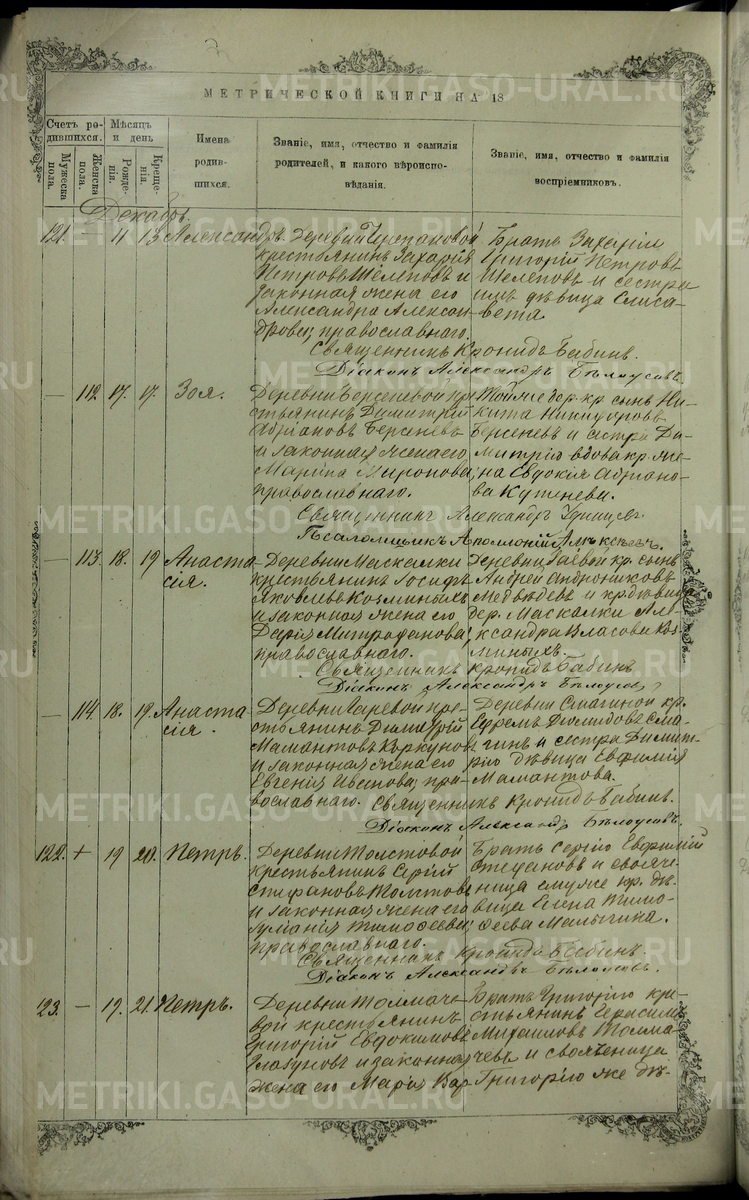 7
МЕТРИЧЕСКОЙ КНИГИ НА 18
Счетъ ро-
дившихся.
Мужеска
пола.
Женска
пола.
Мѣсяцъ
и день
Рожде-
нія.
Креще-
нія.
Имена
родив-
шихся.
Званіе, имя, отчество и фамилія
родителей, и какого вѣроиспо-
вѣданія.
Званіе, имя, отчество и фамилія
воспріемниковъ.
Декабрь.
121. 11 13 Александръ.
Деревни Черепановой
крестьянинъ Захарія
Петровъ Шелеповъ и
законная жена его
Александра Алексан-
дрова; православнаго.
Братъ Захаріи
Григорій Петровъ
Шелеповъ и сестра
дѣвица Елиса-
вета.
Священникъ Кронидъ Бабинъ.
Діаконъ Александръ Бѣлоусовъ.
— 112. 17. 17. Зоя.
Деревни Берсеневой кре-
стьянинъ Димитрій
Адріановъ Берсеневъ
и законная жена его
Марина Миронова;
православнаго.
Той же дер. кр. сынъ Ни-
кита Никифоровъ
Берсеневъ и сестра Ди-
митрію вдова кр. же-
на Евдокія Адріано-
ва
Священникъ Александръ
Псаломщикъ Аполлоній
— 113. 18. 19 Анаста-
сія.
Деревни Маскалки
крестьянинъ Іосифъ
Яковлевъ Козьминыхъ
и законная жена его
Дарія Митрофанова;
православнаго.
Деревни Гаевой кр. сынъ
Андрей Андрониковъ
Медвѣдевъ и кр. дѣвица
дер. Маскалки Але-
ксандра Власова Козь-
миныхъ.
Священникъ Кронидъ Бабинъ
Діаконъ Александръ Бѣлоусовъ
— 114. 18. 19. Анаста-
сія.
Деревни кре-
стьянинъ Димитрій
Мамантовъ Коркуновъ
и законная жена его
Евгенія Иванова; пра-
вославнаго.
Деревни Смагиной кр.
Ефремъ Діомидовъ Сма-
гинъ и сестра Димит-
рію дѣвица Евфимія
Мамантова.
Священникъ Кронидъ Бабинъ.
Діаконъ Александръ Бѣлоусовъ.
122. + 19 20. Петръ.
Деревни Толстовой
крестьянинъ Сергій
Стефановъ Толстовъ
и законная жена его
Іуліанія Тимофеева;
православнаго.
Братъ Сергію Евфимій
Стефановъ и своячи-
ница ему же кр. дѣ-
вица Елена Тимо-
феева Малыгина.
Священникъ Кронидъ Бабинъ.
Діаконъ Александръ Бѣлоусовъ.
123. — 19. 21. Петръ.
Деревни Толмаче-
вой крестьянинъ
Григорій Евдокимовъ
Глазуновъ и законная
жена его Марія Вар-
Братъ Григорію кре-
стьянинъ Герасимъ
Михаиловъ Толма-
чевъ и свояченица
Григорію же дѣ-
METRIKI.GASO-URAL.RU